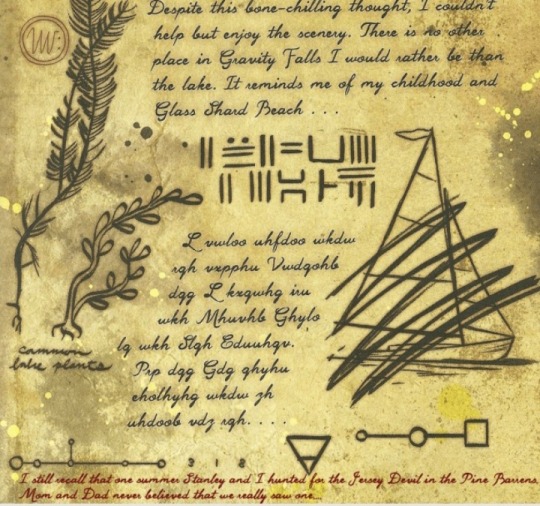 Despite this bone-chilling thought, I couldn't
help but enjoy the scenery. There is no other
place in Gravity Falls I would rather be than
the lake. It reminds me of my childhood and
Glass Shard Beach . . .
L vwloo uhfdoo wkdw
rqh vxpphu Vwdqohb
dqg L kxqwhg iru
wkh Mhuvhb Ghylo
lq wkh Slqh Eduuhqv.
Prp dqg Gdg qhyhu
eholhyhg wkdw zh
uhdoob vdz rqh. . . .
common
lake plants
3 1 8
I still recall that one summer Stanley and I hunted for the Jersey Devil in the Pine Barrens.
Mom and Dad never believed that we really saw one...